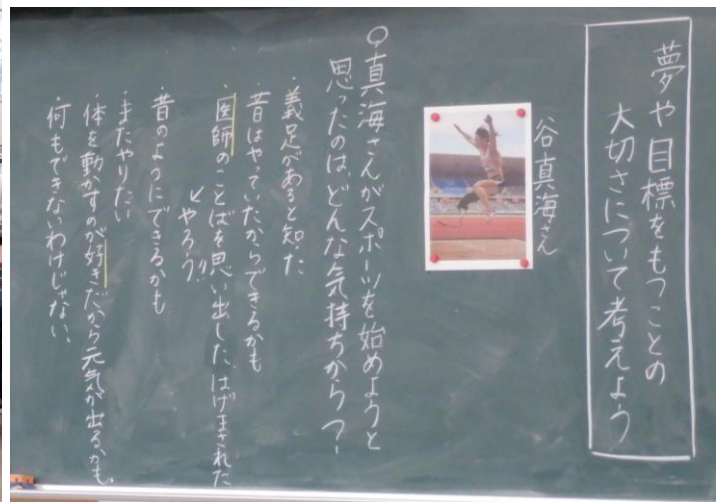 夢や目標をもつことの
大切さについて考えよう
谷真海さん
○真海さんがスポーツを始めようと
思ったのは、どんな気持ちから？
・義足があると知った
・昔はやっていたからできるかも
・医師のことばを思い出した、はげまされた
↙やろう！！
・昔のようにできるかも
・またやりたい
・体を動かすのが好きだから元気が出るかも。
・何もできないわけじゃない。